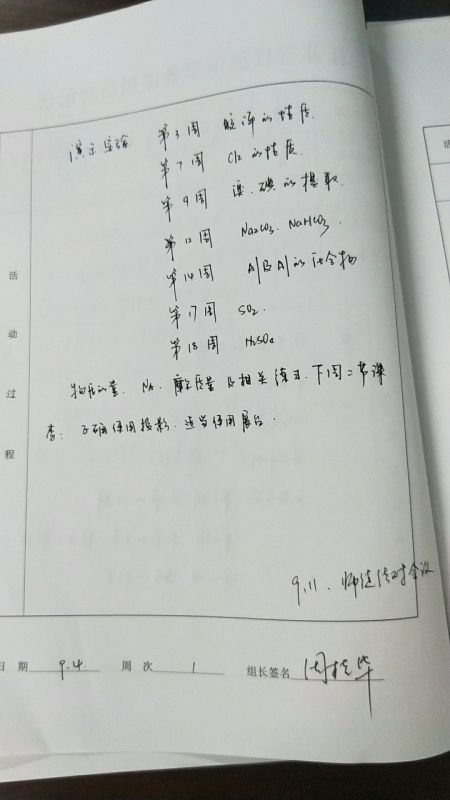 演示实验 第3周 胶体的性质.
第7周 Cl2的性质.
第9周 溴、碘的提取.
第12周 Na2CO3、NaHCO3.
第14周 Al及Al的化合物
第17周 SO2.
第18周 H2SO4
物质的量、NA、摩尔质量及相关练习.下周二节课
李: 正确使用投影,适当使用展台.
9.11、师徒结对会议
活动过程
日期 9.4 周次 1 组长签名
活